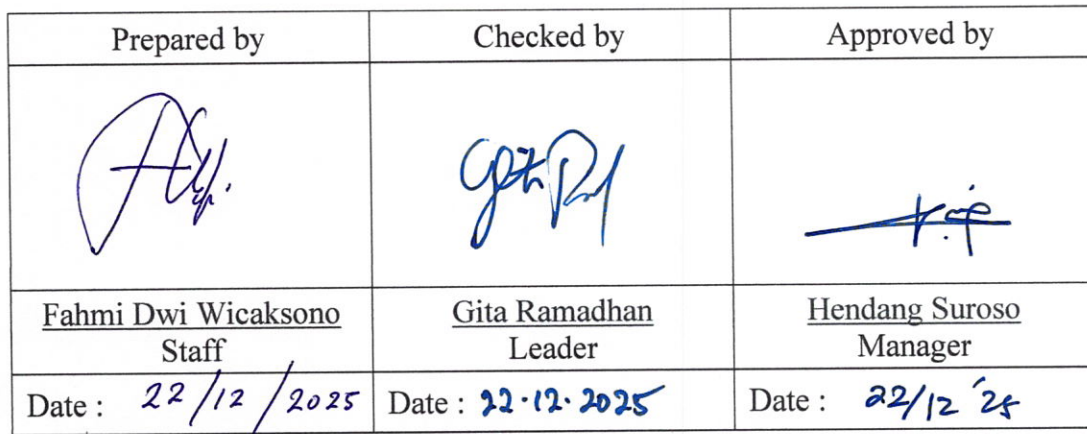 Prepared by
Checked by
Approved by
Fahmi Dwi Wicaksono
Staff
Gita Ramadhan
Leader
Hendang Suroso
Manager
Date : 22/12/2025
Date : 22.12.2025
Date : 22/12 '25